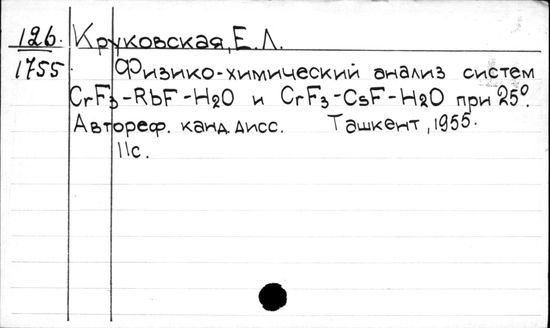 126. Круковская, Е. Л.
1755 Физико-химический анализ систем
CrF3-RbF-H2O и CrF3-CsF-H2O при 25°.
Автореф. канд. дисс. Ташкент, 1955.
11с.